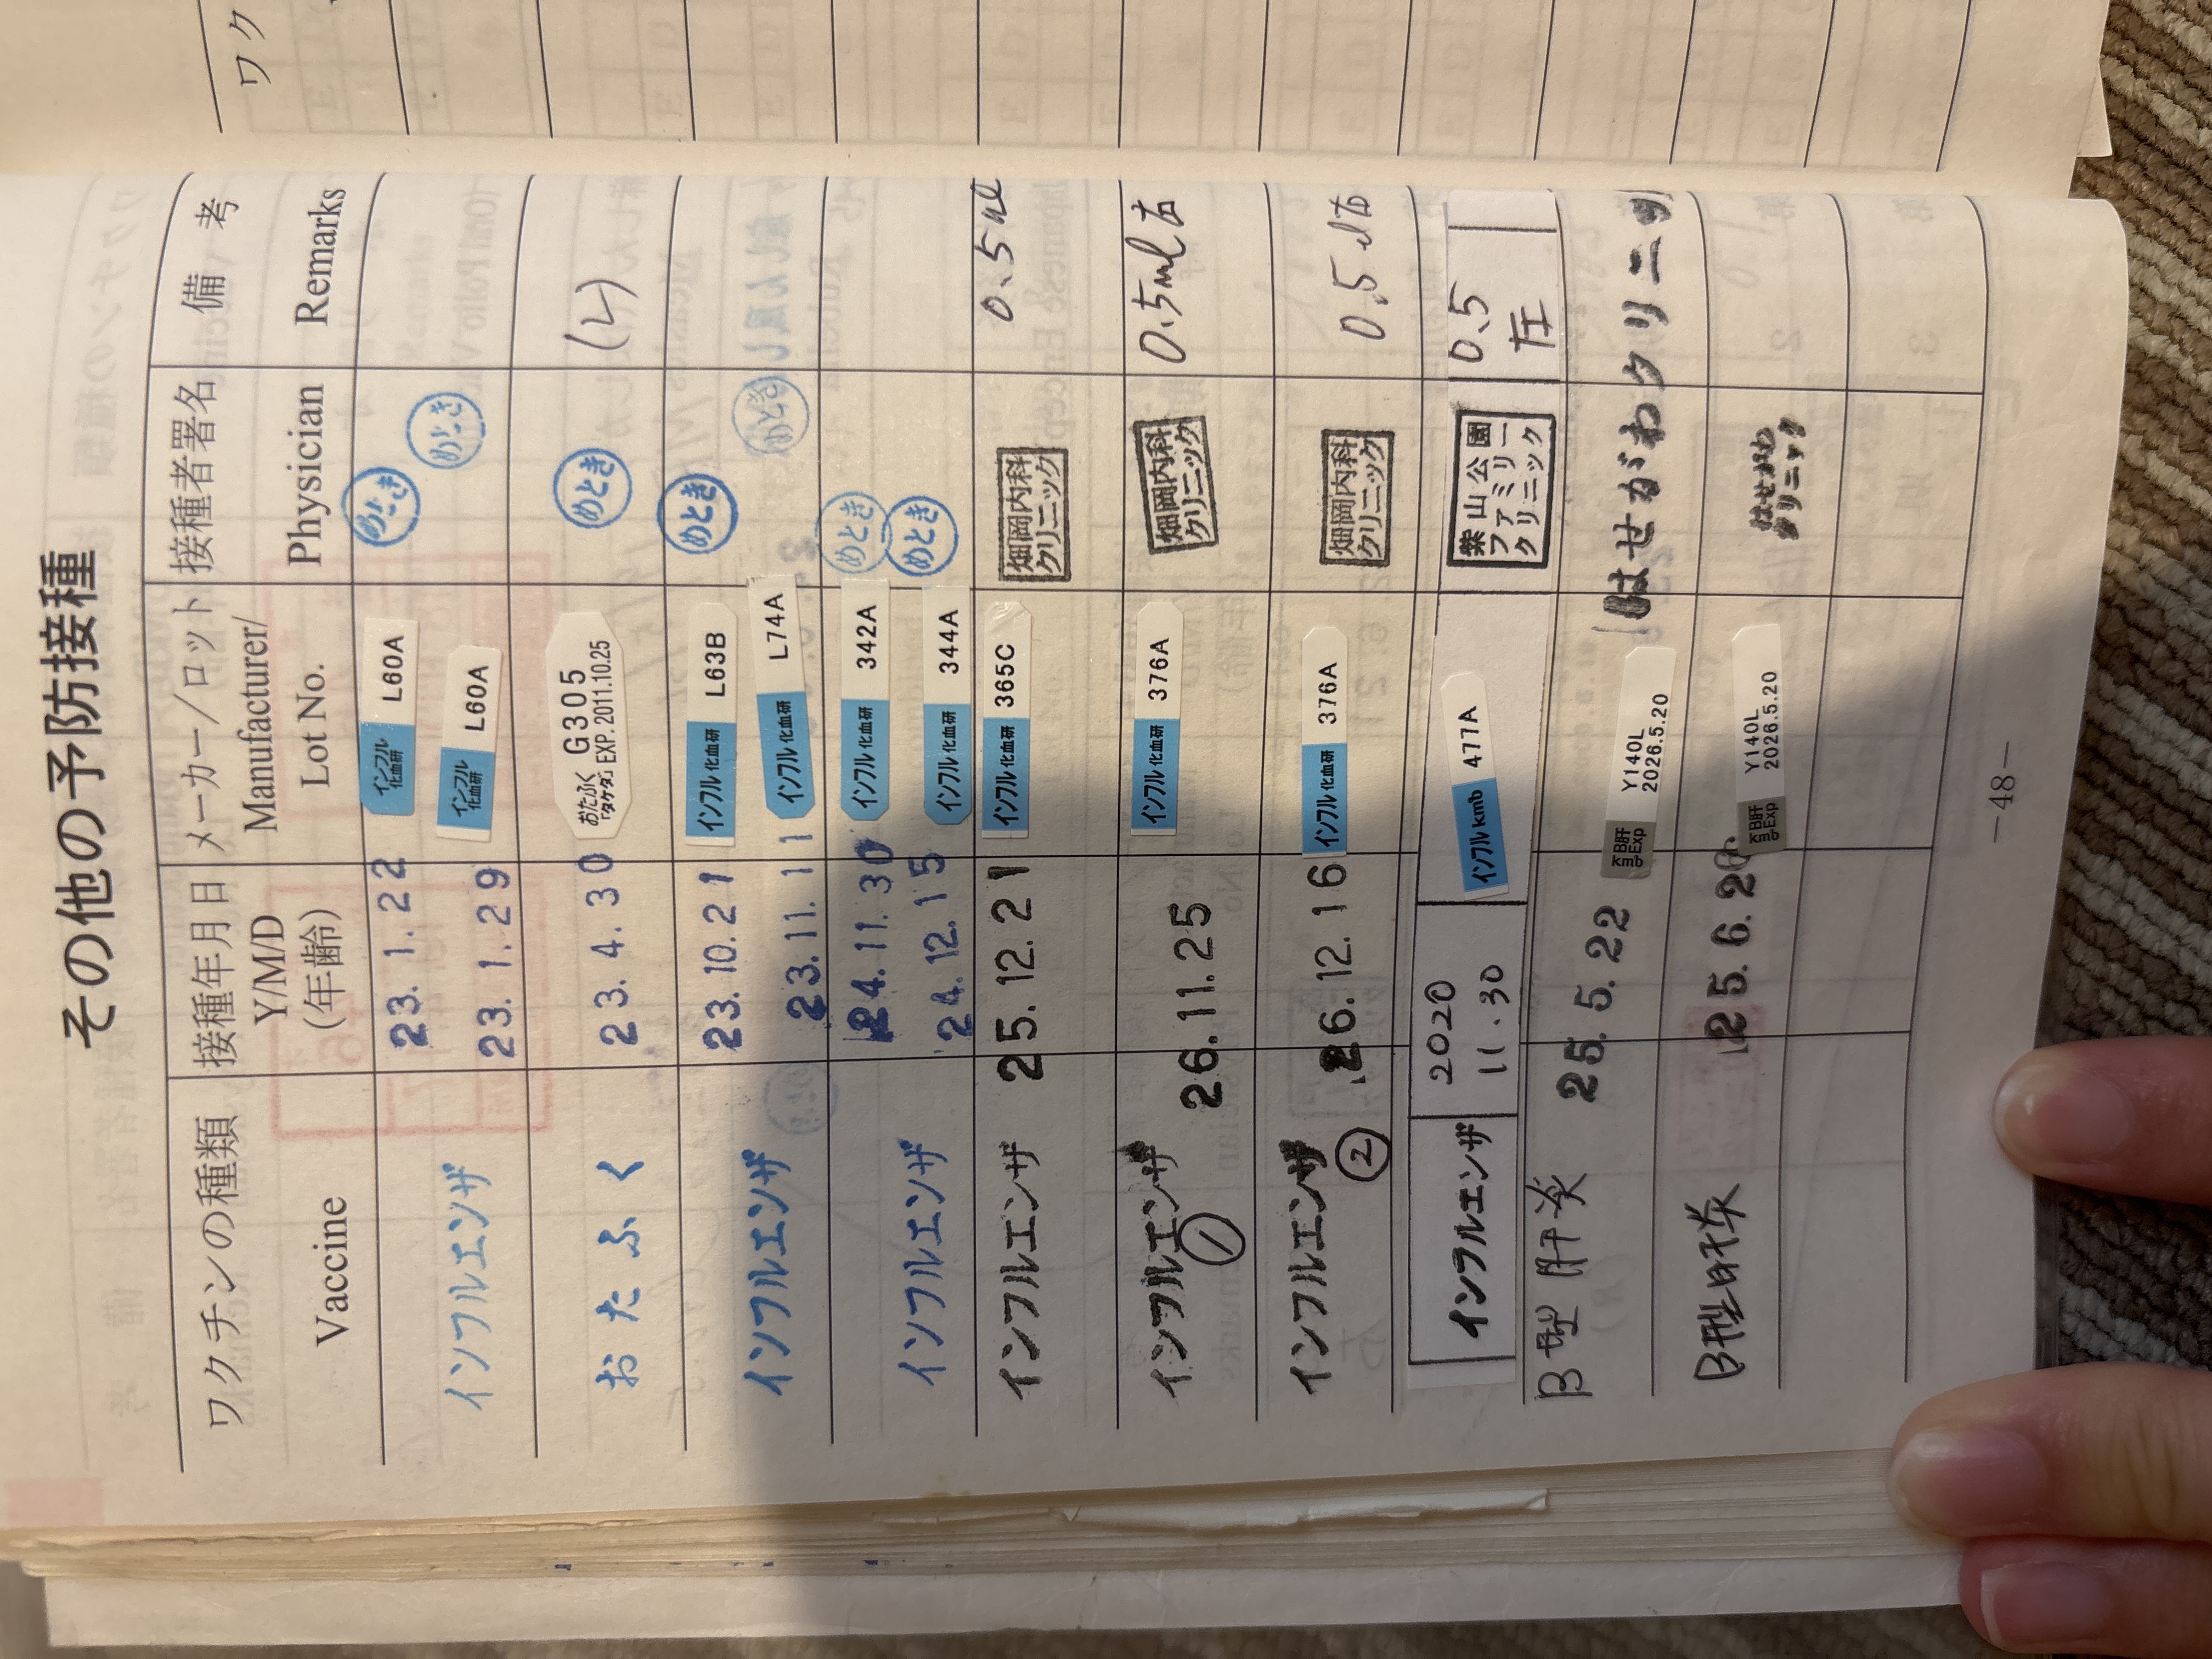 その他の予防接種
ワクチンの種類 接種年月日 メーカー/ロット 接種者署名 備考
Vaccine Y/M/D (年齢) Manufacturer/ Lot No. Physician Remarks
インフルエンザ
23.1.22 インフル 化血研 L60A めとき
23.1.29 インフル 化血研 L60A めとき
おたふく 23.4.30 おたふく「タケダ」 G305 EXP.2011.10.25 めとき (L)
インフルエンザ
23.10.21 インフル 化血研 L63B めとき
23.11.11 インフル 化血研 L74A めとき
インフルエンザ
24.11.30 インフル 化血研 342A めとき
24.12.15 インフル 化血研 344A めとき
インフルエンザ 25.12.21 インフル 化血研 365C 畑岡内科クリニック 0.5ml
インフルエンザ ① 26.11.25 インフル 化血研 376A 畑岡内科クリニック 0.5ml右
インフルエンザ ② 26.12.16 インフル 化血研 376A 畑岡内科クリニック 0.5 右
インフルエンザ 2020 11.30 インフル kmb 477A 紫山公園ファミリークリニック 0.5 左
B型肝炎 25.5.22 B肝 Y140L 2026.5.20 はせがわクリニック
B型肝炎 25.6.20 B肝 Y140L 2026.5.20 はせがわクリニック
－48－
ワク